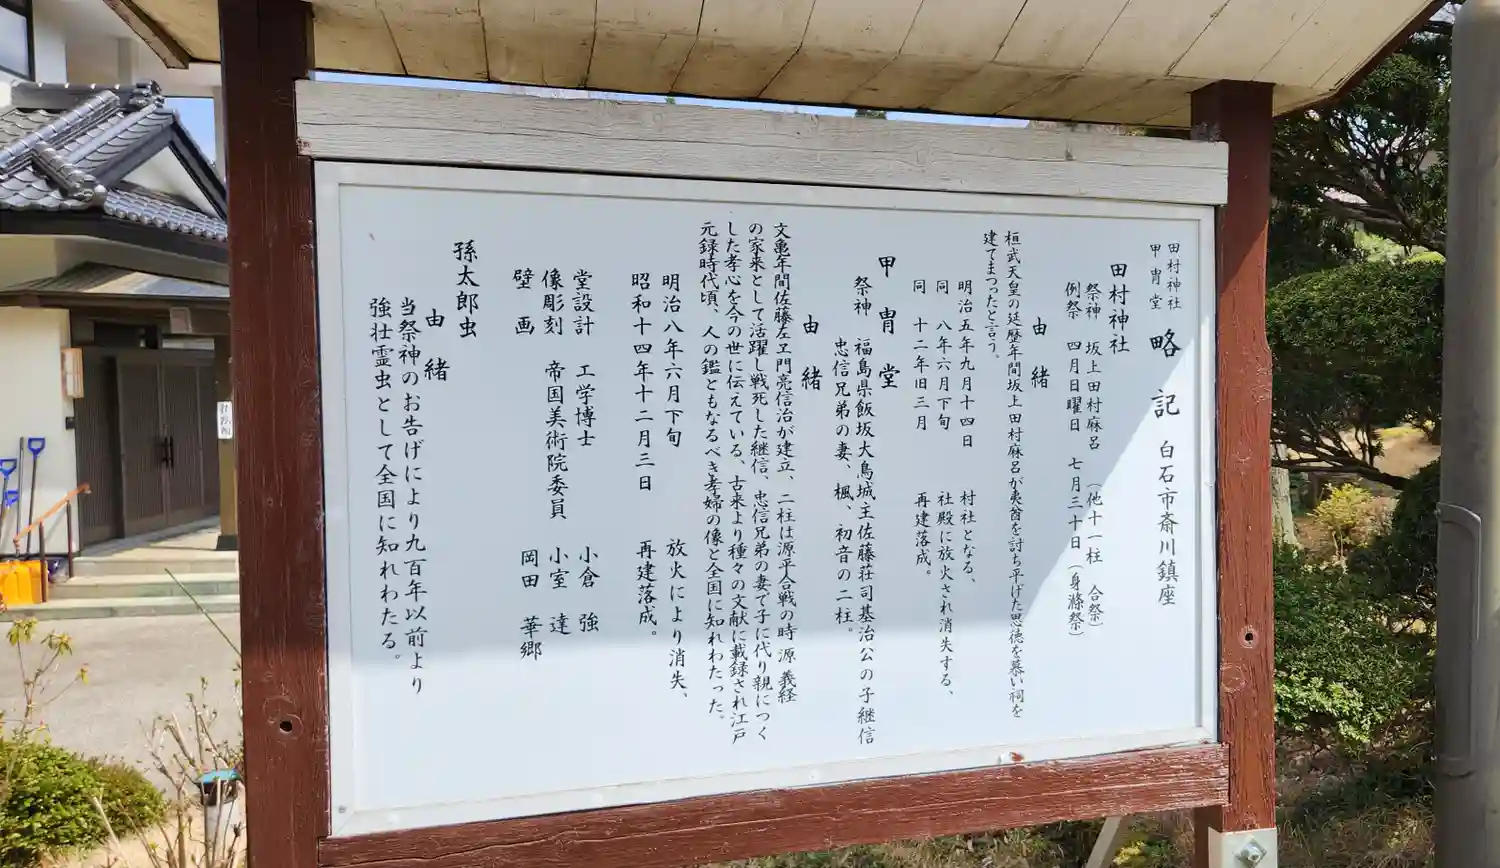 田村神社
甲冑堂
略記 白石市斎川鎮座
田村神社
祭神 坂上田村麻呂 (他十一柱 合祭)
例祭 四月日曜日 七月三十日(身滌祭)
由緒
桓武天皇の延歴年間坂上田村麻呂が夷酋を討ち平げた思徳を慕い祠を
建てまつったと言う。
明治五年九月十四日 村社となる、
同 八年六月下旬 社殿に放火され消失する、
同 十二年旧三月 再建落成。
甲冑堂
祭神 福島県飯坂大鳥城主佐藤荘司基治公の子継信
忠信兄弟の妻、楓、初音の二柱。
由緒
文亀年間佐藤左ヱ門亮信治が建立、二柱は源平合戦の時源義経
の家来として活躍し戦死した継信、忠信兄弟の妻で子に代り親につく
した孝心を今の世に伝えている、古来より種々の文献に載録され江戸
元録時代頃、人の鑑ともなるべき孝婦の像と全国に知れわたった。
明治八年六月下旬 放火により消失、
昭和十四年十二月三日 再建落成。
堂設計 工学博士 小倉 強
像彫刻 帝国美術院委員 小室 達
壁画 岡田 華郷
孫太郎虫
由緒
当祭神のお告げにより九百年以前より
強壮霊虫として全国に知れわたる。